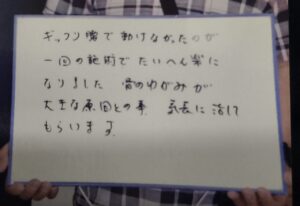 ギックリ腰で動けなかったのが
一回の施術でたいへん楽に
なりました 骨のゆがみが
大きな原因との事 気長に治して
もらいます